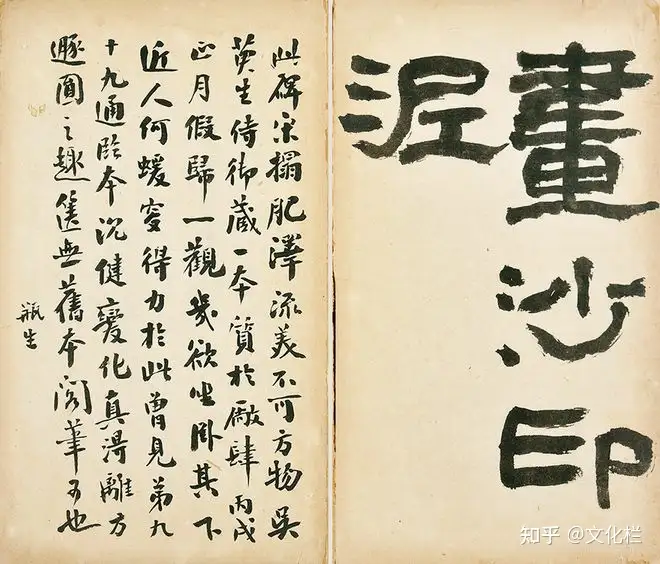 畫沙印
泥
此碑宋搨肥澤流美不可方物吳
生侍御藏一本質於廠肆丙戌
正月假歸一觀幾欲坐卧其下
近人何蝯叟得力於此曾見第九
十九通臨本沉健變化真淂離方
遯圓之趣篋無舊本閣筆可也
瓶生
知乎 @文化栏